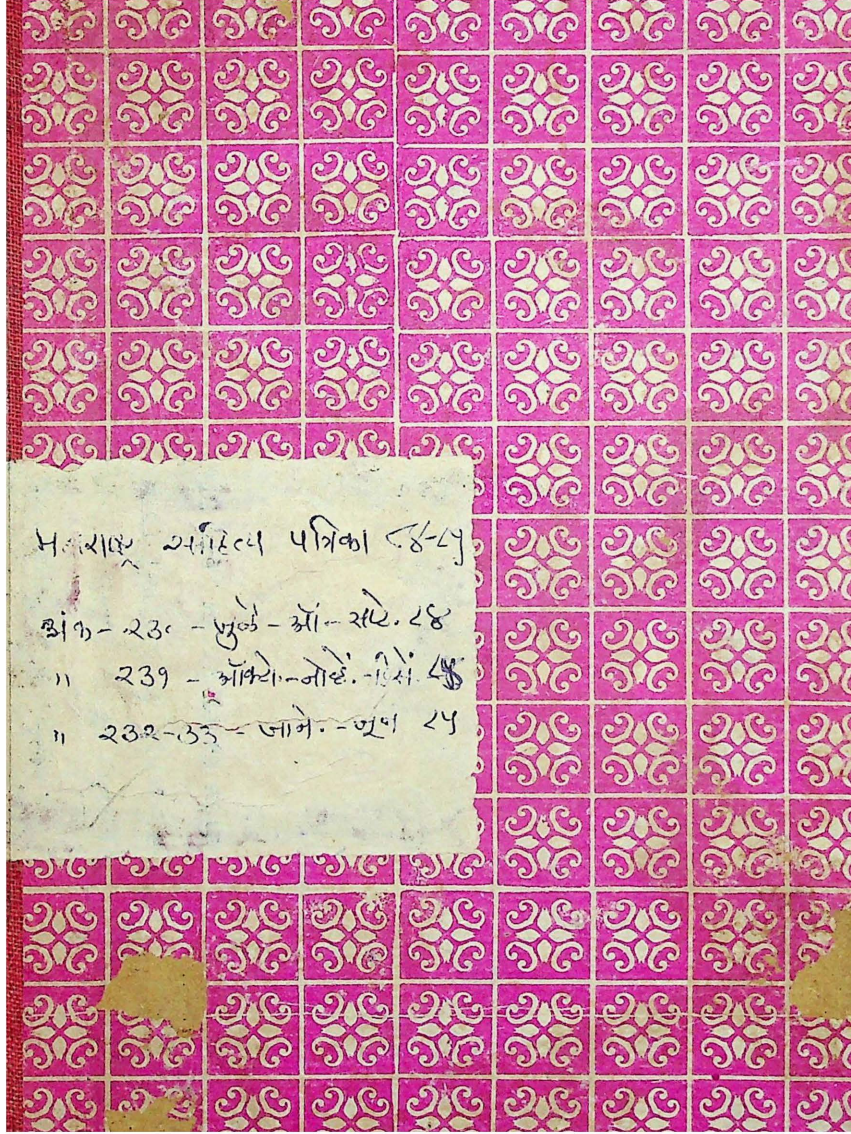 महाराष्ट्र साहित्य पत्रिका ८४-८५
अंक - २३० - जुलै - ऑ - सप्टे. ८४
" २३१ - ऑक्टो.-नोव्हें.-डिसें. ८४
" २३२-३३ - जाने. - जून ८५